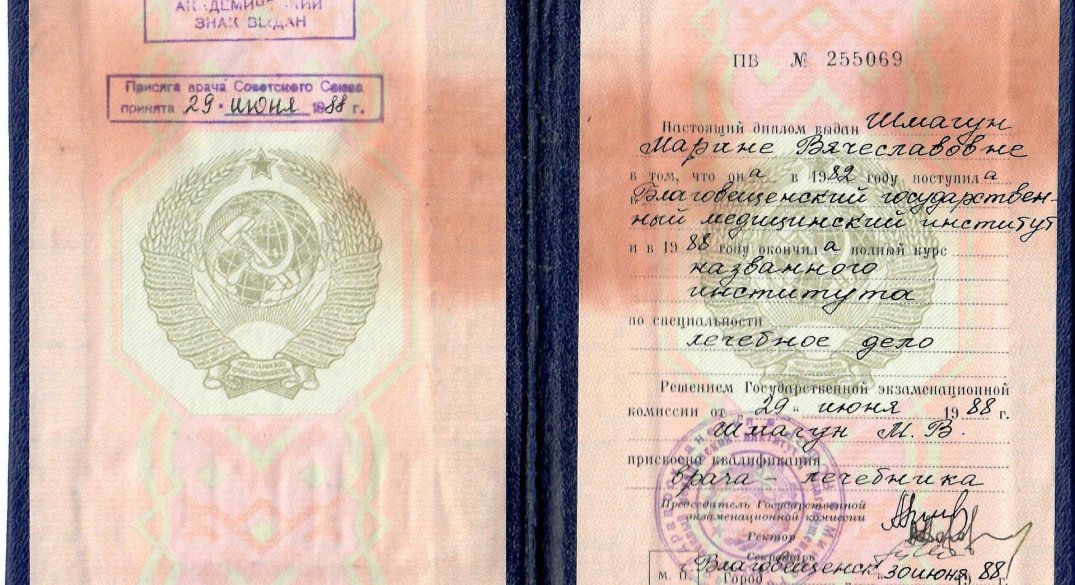 АКАДЕМИЧЕСКИЙ
ЗНАК ВЫДАН
Присяга врача Советского Союза
принята 29 июня 1988 г.
ПВ № 255069
Настоящий диплом выдан Шмагун
Марине Вячеславовне
в том, что она в 1982 году поступила
в Благовещенский государствен-
ный медицинский институт
и в 1988 году окончила полный курс
названного
института
по специальности
лечебное дело
Решением Государственной экзаменационной
комиссии от 29 " июня 1988 г.
Шмагун М. В.
присвоена квалификация
врача - лечебника
Председатель Государственной
экзаменационной комиссии
Ректор
Секретарь
М. П. Город Благовещенск 30 июня 1988